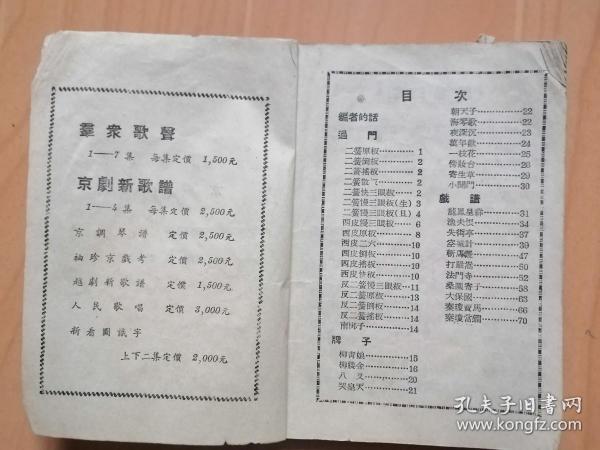 羣衆歌聲
1——7 集 每集定價 1,500元
京劇新歌譜
1——5 集 每集定價 2,500元
京調琴譜 定價 2,500元
袖珍京戲考 定價 2,500元
越劇新歌譜 定價 1,500元
人民歌唱 定價 3,000元
新看圖識字
上下二集定價 2,000元
目 次
編者的話
過門
二簧原板 1
二簧倒板 2
二簧搖板 2
二簧散
二簧快三眼板 2
二簧慢三眼板(生) 3
二簧慢三眼板(旦) 4
西皮慢三眼板 6
西皮原板 8
西皮二六 10
西皮倒板 10
西皮搖板 10
西皮快板 10
反二簧慢三眼板 11
反二簧原板 13
反二簧倒板 14
反二簧搖板 14
南梆子 14
牌子
柳青娘 15
柳搖金 16
八叉 20
哭皇天 21
朝天子 22
海零歌 22
夜深沉 23
萬年歡 24
一枝花 25
傍妝台 28
寄生草 29
小開門 30
戲譜
龍鳳呈祥 31
漁夫恨 34
失街亭 37
空城計 39
斬馬謖 47
打嚴嵩 50
法門寺 52
桑園寄子 58
大保國 63
秦瓊賣馬 66
秦瓊當鐧 70
孔夫子旧书网
www.kongfz.com